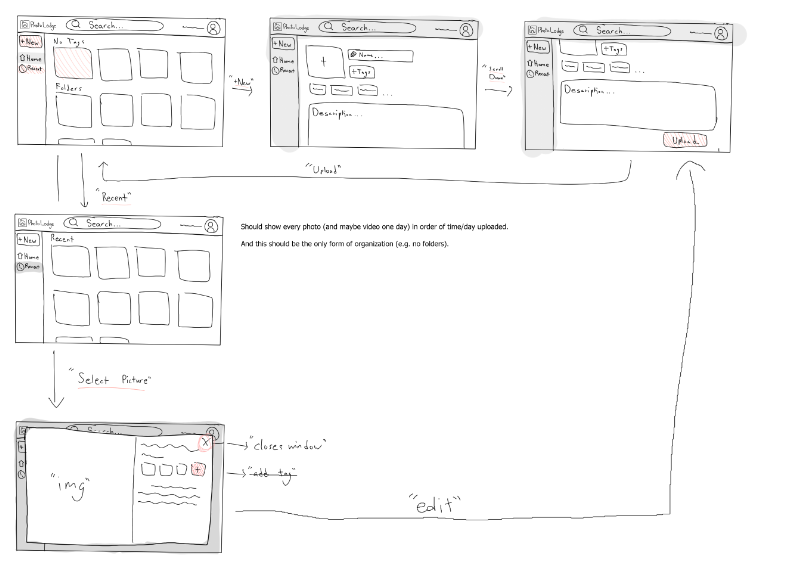 PhotoLodge Search...
+ New
Home
Recent
No Tags
Folders
"+New"
Photo Lodge Search...
+ New
Home
Recent
+
Name...
+Tags
...
Description...
"Scroll Down"
PhotoLodge Search...
+ New
Home
Recent
+Tags
...
Description...
Upload
"Upload"
"Recent"
PhotoLodge Search...
+ New
Home
Recent
Recent
Should show every photo (and maybe video one day) in order of time/day uploaded.
And this should be the only form of organization (e.g. no folders).
"Select Picture"
Search...
"img"
X
+
"closes window"
"add tag"
"edit"